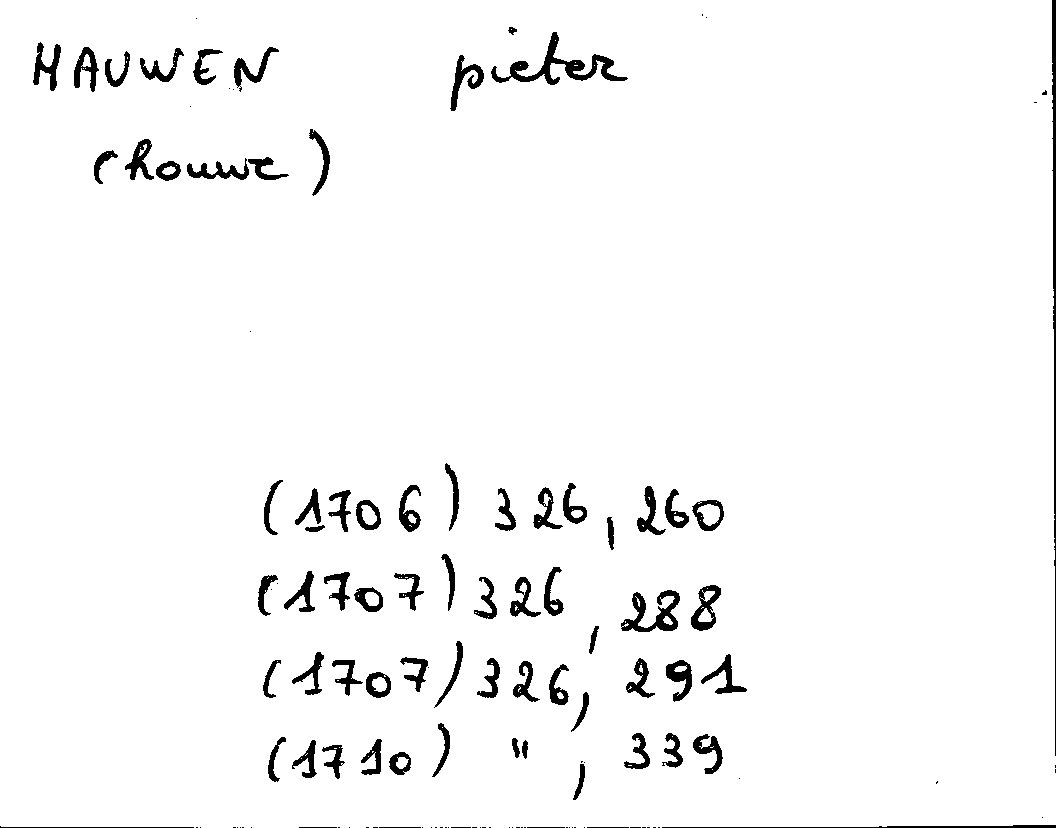 HAUWEN pieter
(houwe)
(1706) 326, 260
(1707) 326, 288
(1707) 326, 291
(1710) " , 339